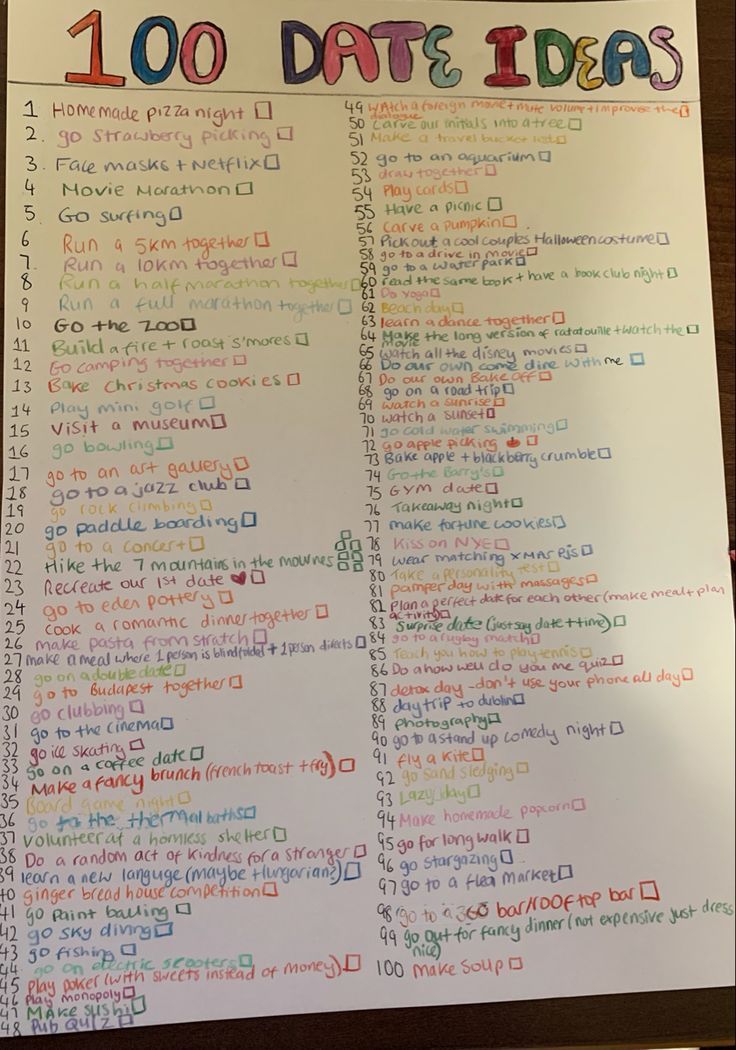 100 DATE IDEAS
1 Homemade pizza night
2. go strawberry picking
3. Face masks + Netflix
4 Movie Marathon
5. Go surfing
6 Run a 5km together
7. Run a 10km together
8 Run a half marathon together
9 Run a full marathon together
10 Go the zoo
11 Build a fire + roast s'mores
12 Go camping together
13 Bake Christmas cookies
14 Play mini golf
15 Visit a museum
16 go bowling
17 go to an art gallery
18 go to a jazz club
19 go rock climbing
20 go paddle boarding
21 go to a concert
22 Hike the 7 mountains in the mournes
23 Recreate our 1st date
24 go to eden pottery
25 cook a romantic dinner together
26 make pasta from stratch
27 make a meal where 1 person is blindfolded + 1 person directs
28 go on a double date
29 go to Budapest together
30 go clubbing
31 go to the cinema
32 go ice skating
33 go on a coffee date
34 Make a fancy brunch (french toast + fry)
35 Board game night
36 go to the thermal baths
37 Volunteer at a homless shelter
38 Do a random act of kindness for a stranger
39 learn a new languge (maybe Hungarian?)
40 ginger bread house competition
41 go paint balling
42 go sky diving
43 go fishing
44 go on electric scooters
45 Play poker (with sweets instead of money)
46 Play monopoly
47 Make sushi
48 Pub Quiz
49 Watch a foreign movie + mute volume + improvise the
dialogue
50 Carve our initials into a tree
51 Make a travel bucket list
52 go to an aquarium
53 draw together
54 Play cards
55 Have a picnic
56 Carve a pumpkin
57 Pick out a cool couples Halloween costume
58 go to a drive in movie
59 go to a water park
60 read the same book + have a book club night
61 Do yoga
62 Beach day
63 learn a dance together
64 Make the long version of ratatouille + watch the
movie
65 watch all the disney movies
66 Do our own come dine with me
67 Do our own Bake off
68 go on a road trip
69 watch a sunrise
70 watch a sunset
71 go cold water swimming
72 go apple picking
73 Bake apple + blackberry crumble
74 Go the Barry's
75 Gym date
76 Takeaway night
77 make fortune cookies
78 Kiss on NYE
79 wear matching xmas pjs
80 Take a personality test
81 pamper day with massages
82 Plan a perfect date for each other (make meal + plan
activity)
83 Surprise date (just say date + time)
84 go to a rugby match
85 Teach you how to play tennis
86 Do a how well do you me quiz
87 detox day - don't use your phone all day
88 day trip to dublin
89 Photography
90 go to a stand up comedy night
91 fly a kite
92 go sand sledging
93 Lazy day
94 Make homemade popcorn
95 go for long walk
96 go stargazing
97 go to a flea market
98 go to a 360 bar/rooftop bar
99 go out for fancy dinner (not expensive just dress
nice)
100 Make soup